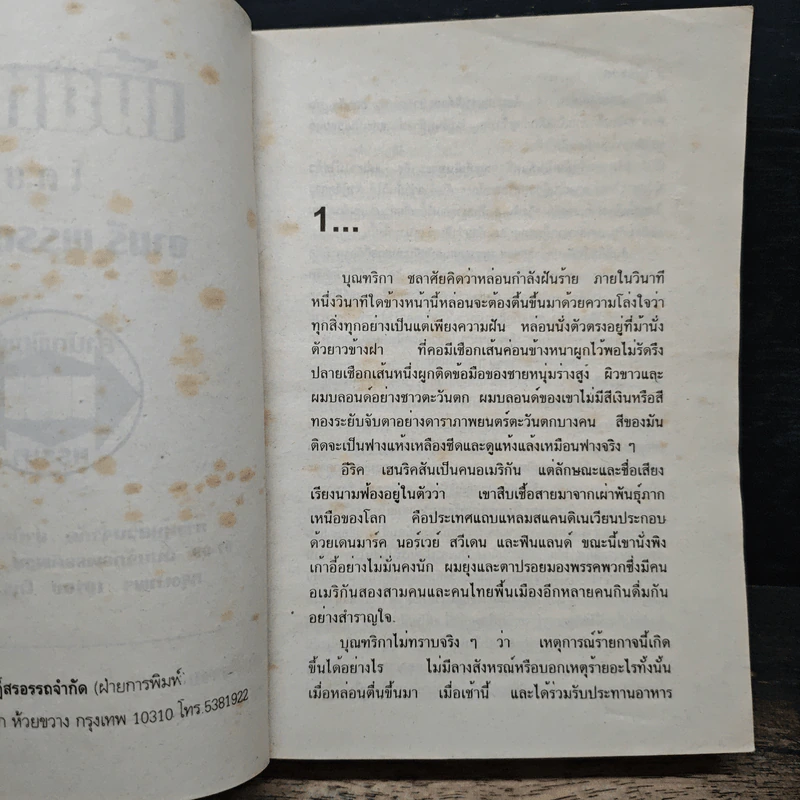 ฎ์สรอรรถจำกัด (ฝ่ายการพิมพ์
ห้วยขวาง กรุงเทพ 10310 โทร.5381922
1...
บุณฑริกา ชลาศัยคิดว่าหล่อนกำลังฝันร้าย ภายในวินาที
หนึ่งวินาทีใดข้างหน้านี้หล่อนจะต้องตื่นขึ้นมาด้วยความโล่งใจว่า
ทุกสิ่งทุกอย่างเป็นแต่เพียงความฝัน หล่อนนั่งตัวตรงอยู่ที่ม้านั่ง
ตัวยาวข้างฝา ที่คอมีเชือกเส้นค่อนข้างหนาผูกไว้พอไม่รัดรึง
ปลายเชือกเส้นหนึ่งผูกติดข้อมือของชายหนุ่มร่างสูง ผิวขาวและ
ผมบลอนด์อย่างชาวตะวันตก ผมบลอนด์ของเขาไม่มีสีเงินหรือสี
ทองระยับจับตาอย่างดาราภาพยนตร์ตะวันตกบางคน สีของมัน
ติดจะเป็นฟางแห้งเหลืองซีดและดูแห้งแล้งเหมือนฟางจริง ๆ
อีริค เฮนริคสันเป็นคนอเมริกัน แต่ลักษณะและชื่อเสียง
เรียงนามฟ้องอยู่ในตัวว่า เขาสืบเชื้อสายมาจากเผ่าพันธุ์ภาก
เหนือของโลก คือประเทศแถบแหลมสแคนดิเนเวียนประกอบ
ด้วยเดนมาร์ค นอร์เวย์ สวีเดน และฟินแลนด์ ขณะนี้เขานั่งพิง
เก้าอี้อย่างไม่มั่นคงนัก ผมยุ่งและตาปรอยมองพรรคพวกซึ่งมีคน
อเมริกันสองสามคนและคนไทยพื้นเมืองอีกหลายคนกินดื่มกัน
อย่างสำราญใจ.
บุณฑริกาไม่ทราบจริง ๆ ว่า เหตุการณ์ร้ายกาจนี้เกิด
ขึ้นได้อย่างไร ไม่มีลางสังหรณ์หรือบอกเหตุร้ายอะไรทั้งนั้น
เมื่อหล่อนตื่นขึ้นมา เมื่อเช้านี้ และได้ร่วมรับประทานอาหาร